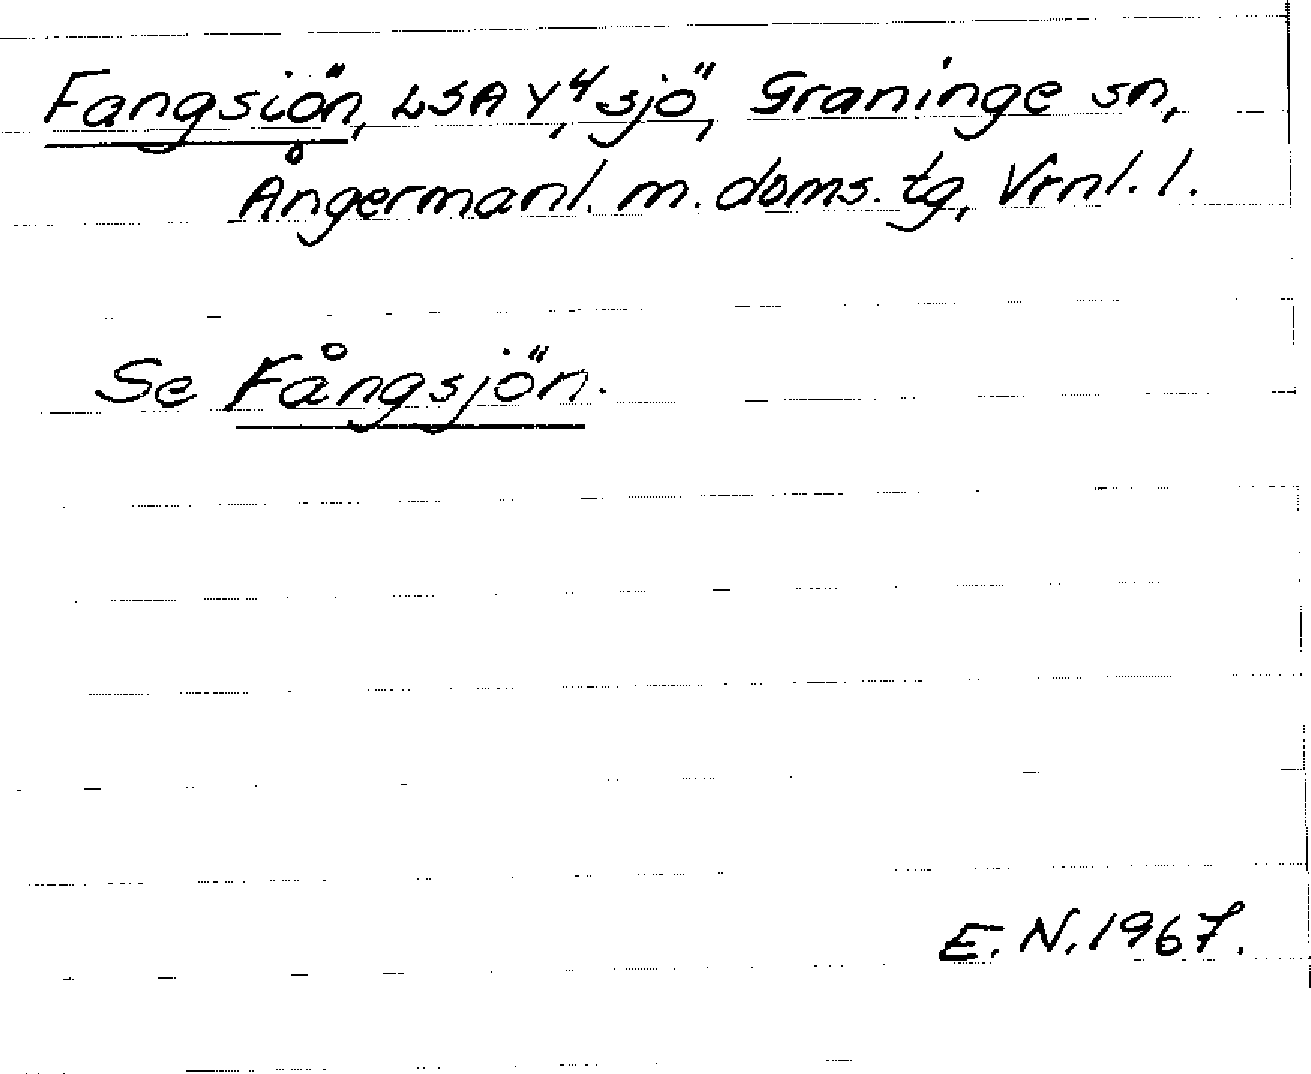 Fangsiön, LSA Y⁴, sjö, Graninge sn,
Ångermanl. m. doms. tg, Vrnl. l.
Se Fångsjön.
E. N. 1967.